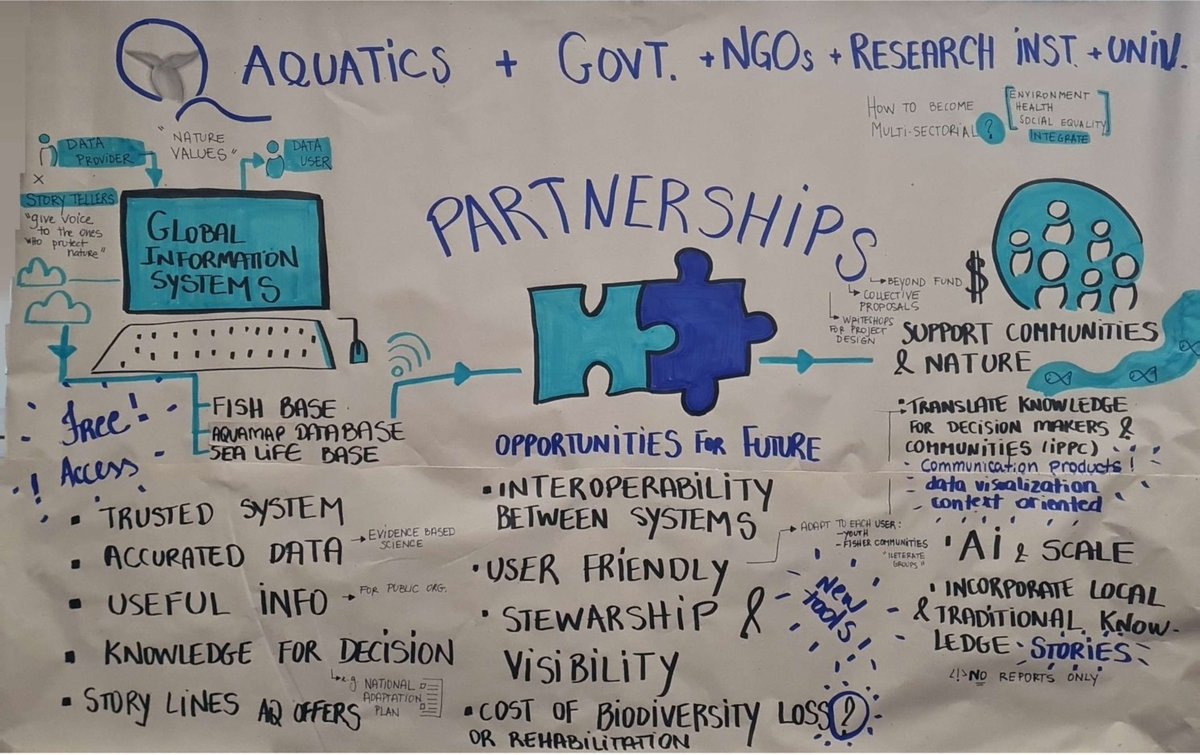 Q AQUATICS + GOVT. + NGOs + RESEARCH INST. + UNIV.
HOW TO BECOME
MULTI-SECTORIAL ?
ENVIRONMENT
HEALTH
SOCIAL EQUALITY
INTEGRATE
DATA
PROVIDER
"NATURE
VALUES"
DATA
USER
X
STORY TELLERS
"give voice
to the ones
who protect
nature"
GLOBAL
INFORMATION
SYSTEMS
FREE!
! ACCESS
FISH BASE
AQUAMAP DATABASE
SEA LIFE BASE
▪ TRUSTED SYSTEM
▪ ACCURATED DATA → EVIDENCE BASED
SCIENCE
▪ USEFUL INFO → FOR PUBLIC ORG.
▪ KNOWLEDGE FOR DECISION
e.g NATIONAL
ADAPTATION
PLAN
▪ STORY LINES AQ OFFERS
PARTNERSHIPS
BEYOND FUND $
COLLECTIVE
PROPOSALS
WRITESHOPS
FOR PROJECT
DESIGN
OPPORTUNITIES FOR FUTURE
▪ INTEROPERABILITY
BETWEEN SYSTEMS
▪ USER FRIENDLY
→ ADAPT TO EACH USER:
- YOUTH
- FISHER COMMUNITIES
"ILETERATE
GROUPS"
▪ STEWARSHIP &
VISIBILITY
NEW
TOOLS
▪ COST OF BIODIVERSITY LOSS?
OR REHABILITATION
SUPPORT COMMUNITIES
& NATURE
: TRANSLATE KNOWLEDGE
FOR DECISION MAKERS &
COMMUNITIES (IPPC)
Communication products!
data visualization
context oriented
▪ AI & SCALE
▪ INCORPORATE LOCAL
& TRADITIONAL KNOW-
LEDGE STORIES
NO REPORTS ONLY